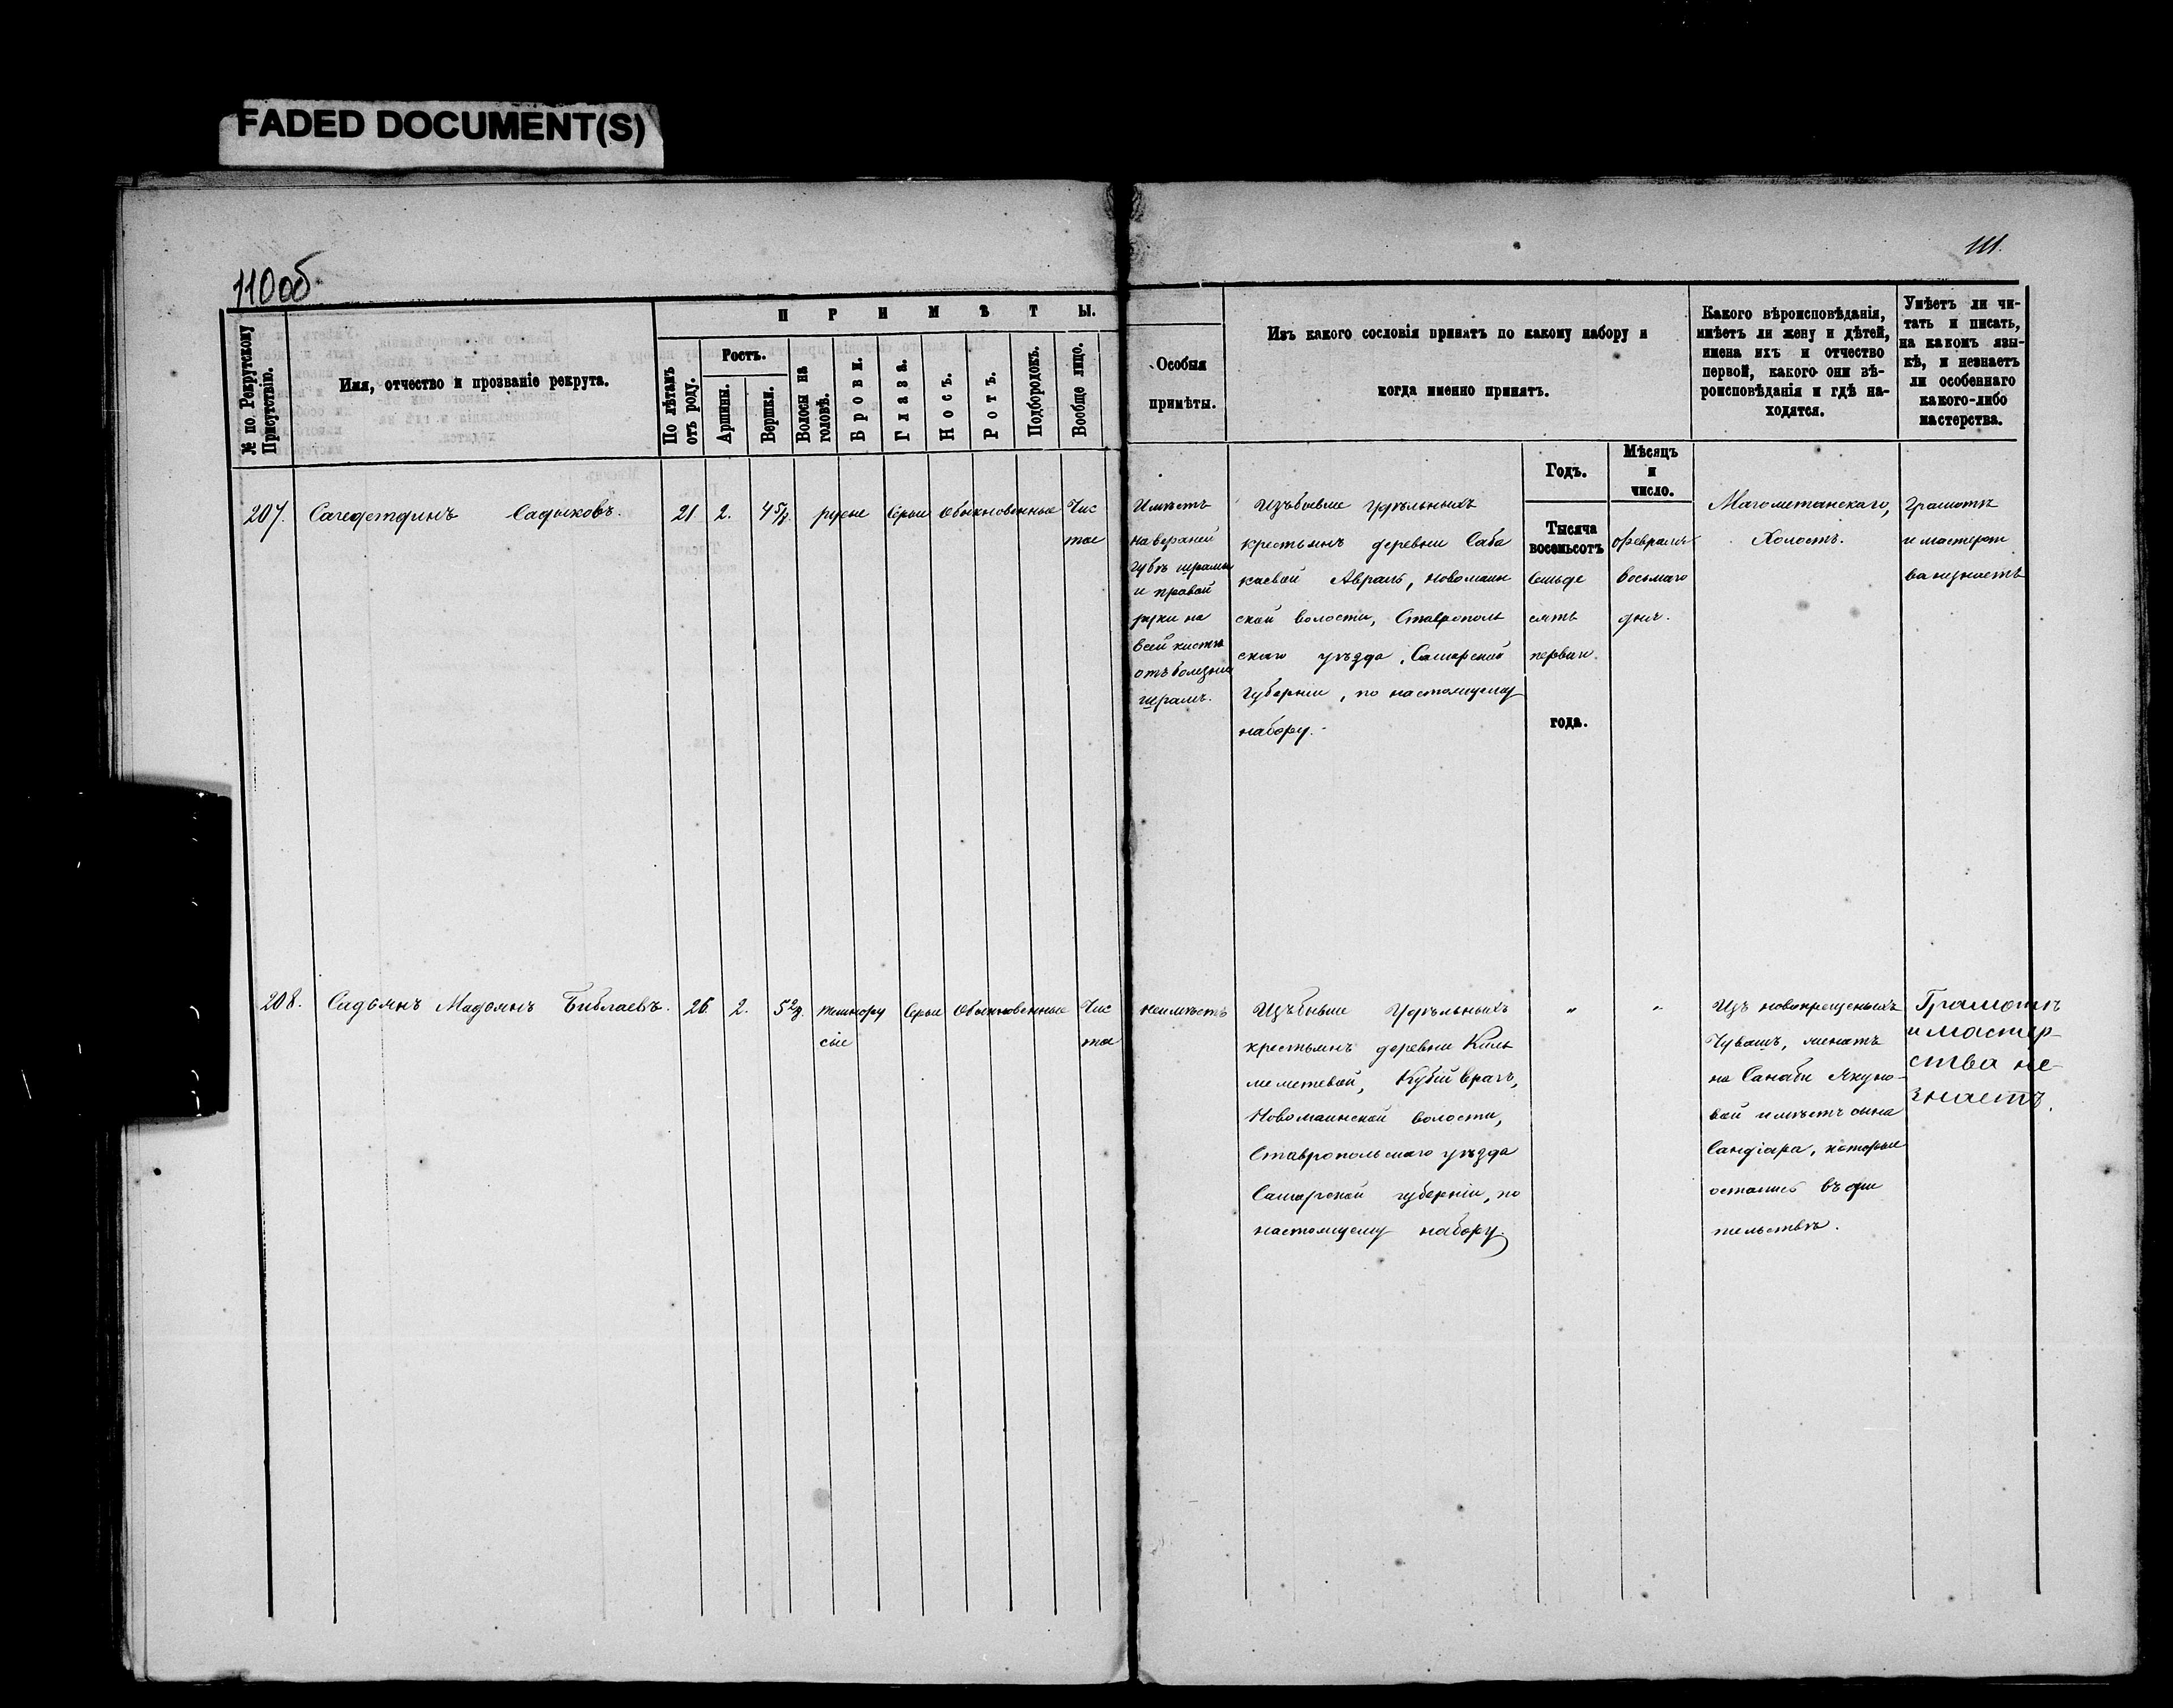 FADED DOCUMENT(S)
110 об
111.
№ по Рекрутскому Присутствію.
Имя, отчество и прозваніе рекрута.
П Р И М Ѣ Т Ы.
По лѣтамъ отъ роду.
Ростъ.
Аршины.
Вершки.
Волосы на головѣ.
Брови.
Глаза.
Носъ.
Ротъ.
Подбородокъ.
Вообще лицо.
Особыя
примѣты.
Изъ какого сословія принятъ по какому набору и
когда именно принятъ.
Какого вѣроисповѣданія,
имѣетъ ли жену и дѣтей,
имена ихъ и отчество
первой, какого они вѣ-
роисповѣданія и гдѣ на-
ходятся.
Умѣетъ ли чи-
тать и писать,
на какомъ язы-
кѣ, и незнаетъ
ли особеннаго
какого-либо
мастерства.
Годъ.
Мѣсяцъ
и
число.
207. Сагедетдинъ Садыковъ. 21 2. 4 5/8. русые серые обыкновенные Чис
тое
Имѣетъ
на верхней
губѣ шрамъ
и правой
руки на
всей кисти
отъ болезни
шрамъ.
Изъ бывше удѣльныхъ
крестьянъ деревни Саба
каевой Авраль, новомаин
ской волости, Ставрополь
скаго уѣзда, Самарской
Губерніи, по настоящему
набору.
Тысяча
восемьсотъ
семьде
сятъ
перваго.
года.
февраля
восьмаго
дня.
Магометанскаго,
Холостъ.
Грамотѣ
и мастерст
ва незнаетъ
208. Садьянъ Мадьянъ Бибаевъ. 26 2. 5 2/8. темнору серые обыкновенные Чис
сые тое
неимѣетъ
Изъ бывше Удѣльныхъ
крестьянъ деревни Киль
меметевой,
Новомаинской волости,
Ставропольскаго уѣзда
Самарской губерніи, по
настоящему набору.
" "
Изъ новокрещеныхъ
Чувашъ, женатъ
на Санаби Якупо-
вой имѣетъ сына
Сандіара, которые
остались въ жи
тельствѣ.
Грамотѣ
и мастер-
ства не-
знаетъ.